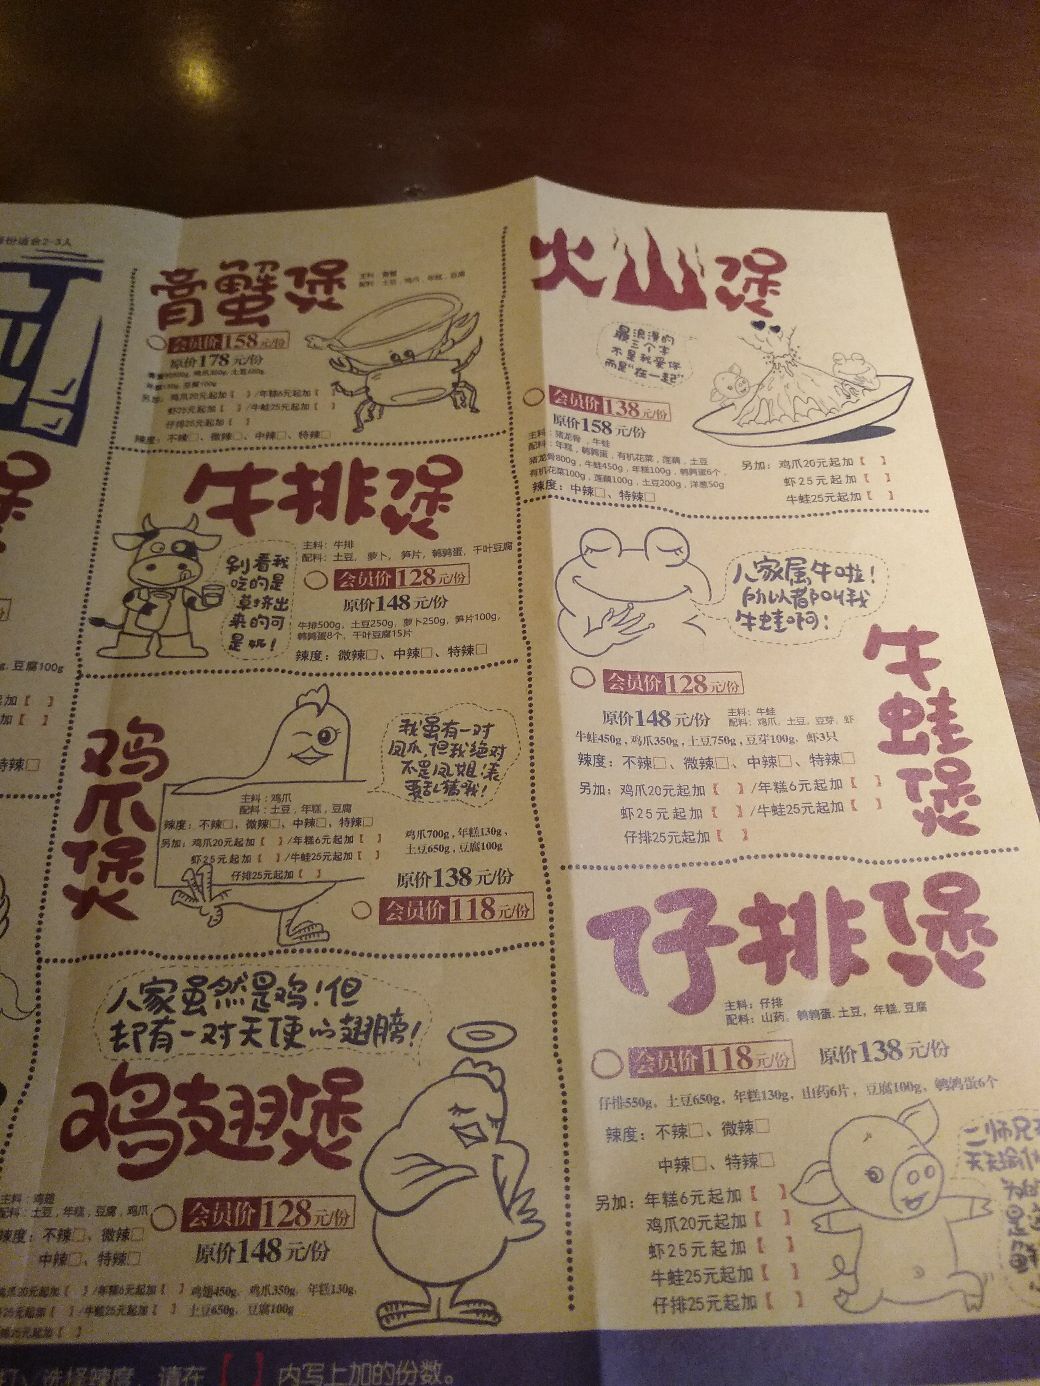 份适合2-3人
膏蟹煲
主料：膏蟹
配料：土豆，鸡爪，年糕，豆腐
会员价158元/份
原价178元/份
另加：鸡爪20元起加【 】/年糕6元起加【 】
虾25元起加【 】/牛蛙25元起加【 】
仔排25元起加【 】
辣度：不辣□、微辣□、中辣□、特辣□
火山煲
最浪漫的
三个字
不是我爱你
而是“在一起”
会员价138元/份
原价158元/份
主料：猪龙骨，牛蛙
配料：年糕，鹌鹑蛋，有机花菜，莲藕，土豆
猪龙骨800g，牛蛙450g，年糕100g，鹌鹑蛋6个，
有机花菜100g，莲藕100g，土豆200g，洋葱50g
辣度：中辣□、特辣□
另加：鸡爪20元起加【 】
虾25元起加【 】
牛蛙25元起加【 】
牛排煲
别看我
吃的是
草挤出
来的可
是奶！
主料：牛排
配料：土豆，萝卜，笋片，鹌鹑蛋，千叶豆腐
会员价128元/份
原价148元/份
牛排500g，土豆250g，萝卜250g，笋片100g，
鹌鹑蛋8个，千叶豆腐15片
辣度：微辣□、中辣□、特辣□
人家属牛啦！
所以者都叫我
牛蛙啊：
牛蛙煲
会员价128元/份
原价148元/份
主料：牛蛙
配料：鸡爪，土豆，豆芽，虾
牛蛙450g，鸡爪350g，土豆750g，豆芽100g，虾3只
辣度：不辣□、微辣□、中辣□、特辣□
另加：鸡爪20元起加【 】/年糕6元起加【 】
虾25元起加【 】/牛蛙25元起加【 】
仔排25元起加【 】
鸡爪煲
我虽有一对
凤爪，但我绝对
不是凤姐，表
乱猜我！
主料：鸡爪
配料：土豆，年糕，豆腐
辣度：不辣□、微辣□、中辣□、特辣□
另加：鸡爪20元起加【 】/年糕6元起加【 】
虾25元起加【 】/牛蛙25元起加【 】
仔排25元起加【 】
鸡爪700g，年糕130g，
土豆650g，豆腐100g
原价138元/份
会员价118元/份
仔排煲
主料：仔排
配料：山药，鹌鹑蛋，土豆，年糕，豆腐
会员价118元/份 原价138元/份
仔排550g，土豆650g，年糕130g，山药6片，豆腐100g，鹌鹑蛋6个
辣度：不辣□、微辣□
中辣□、特辣□
另加：年糕6元起加【 】
鸡爪20元起加【 】
虾25元起加【 】
牛蛙25元起加【 】
仔排25元起加【 】
二师兄
天天
人家虽然是鸡！但
却有一对天使的翅膀！
鸡翅煲
配料：土豆，年糕，豆腐，鸡爪
辣度：不辣□、微辣□
中辣□、特辣□
会员价128元/份
原价148元/份
鸡爪20元起加【 】/年糕6元起加【 】
25元起加【 】/牛蛙25元起加【 】
鸡翅450g，鸡爪350g，年糕130g，
土豆650g，豆腐100g
豆腐100g
特辣□
选择辣度，请在【 】内写上加的份数。